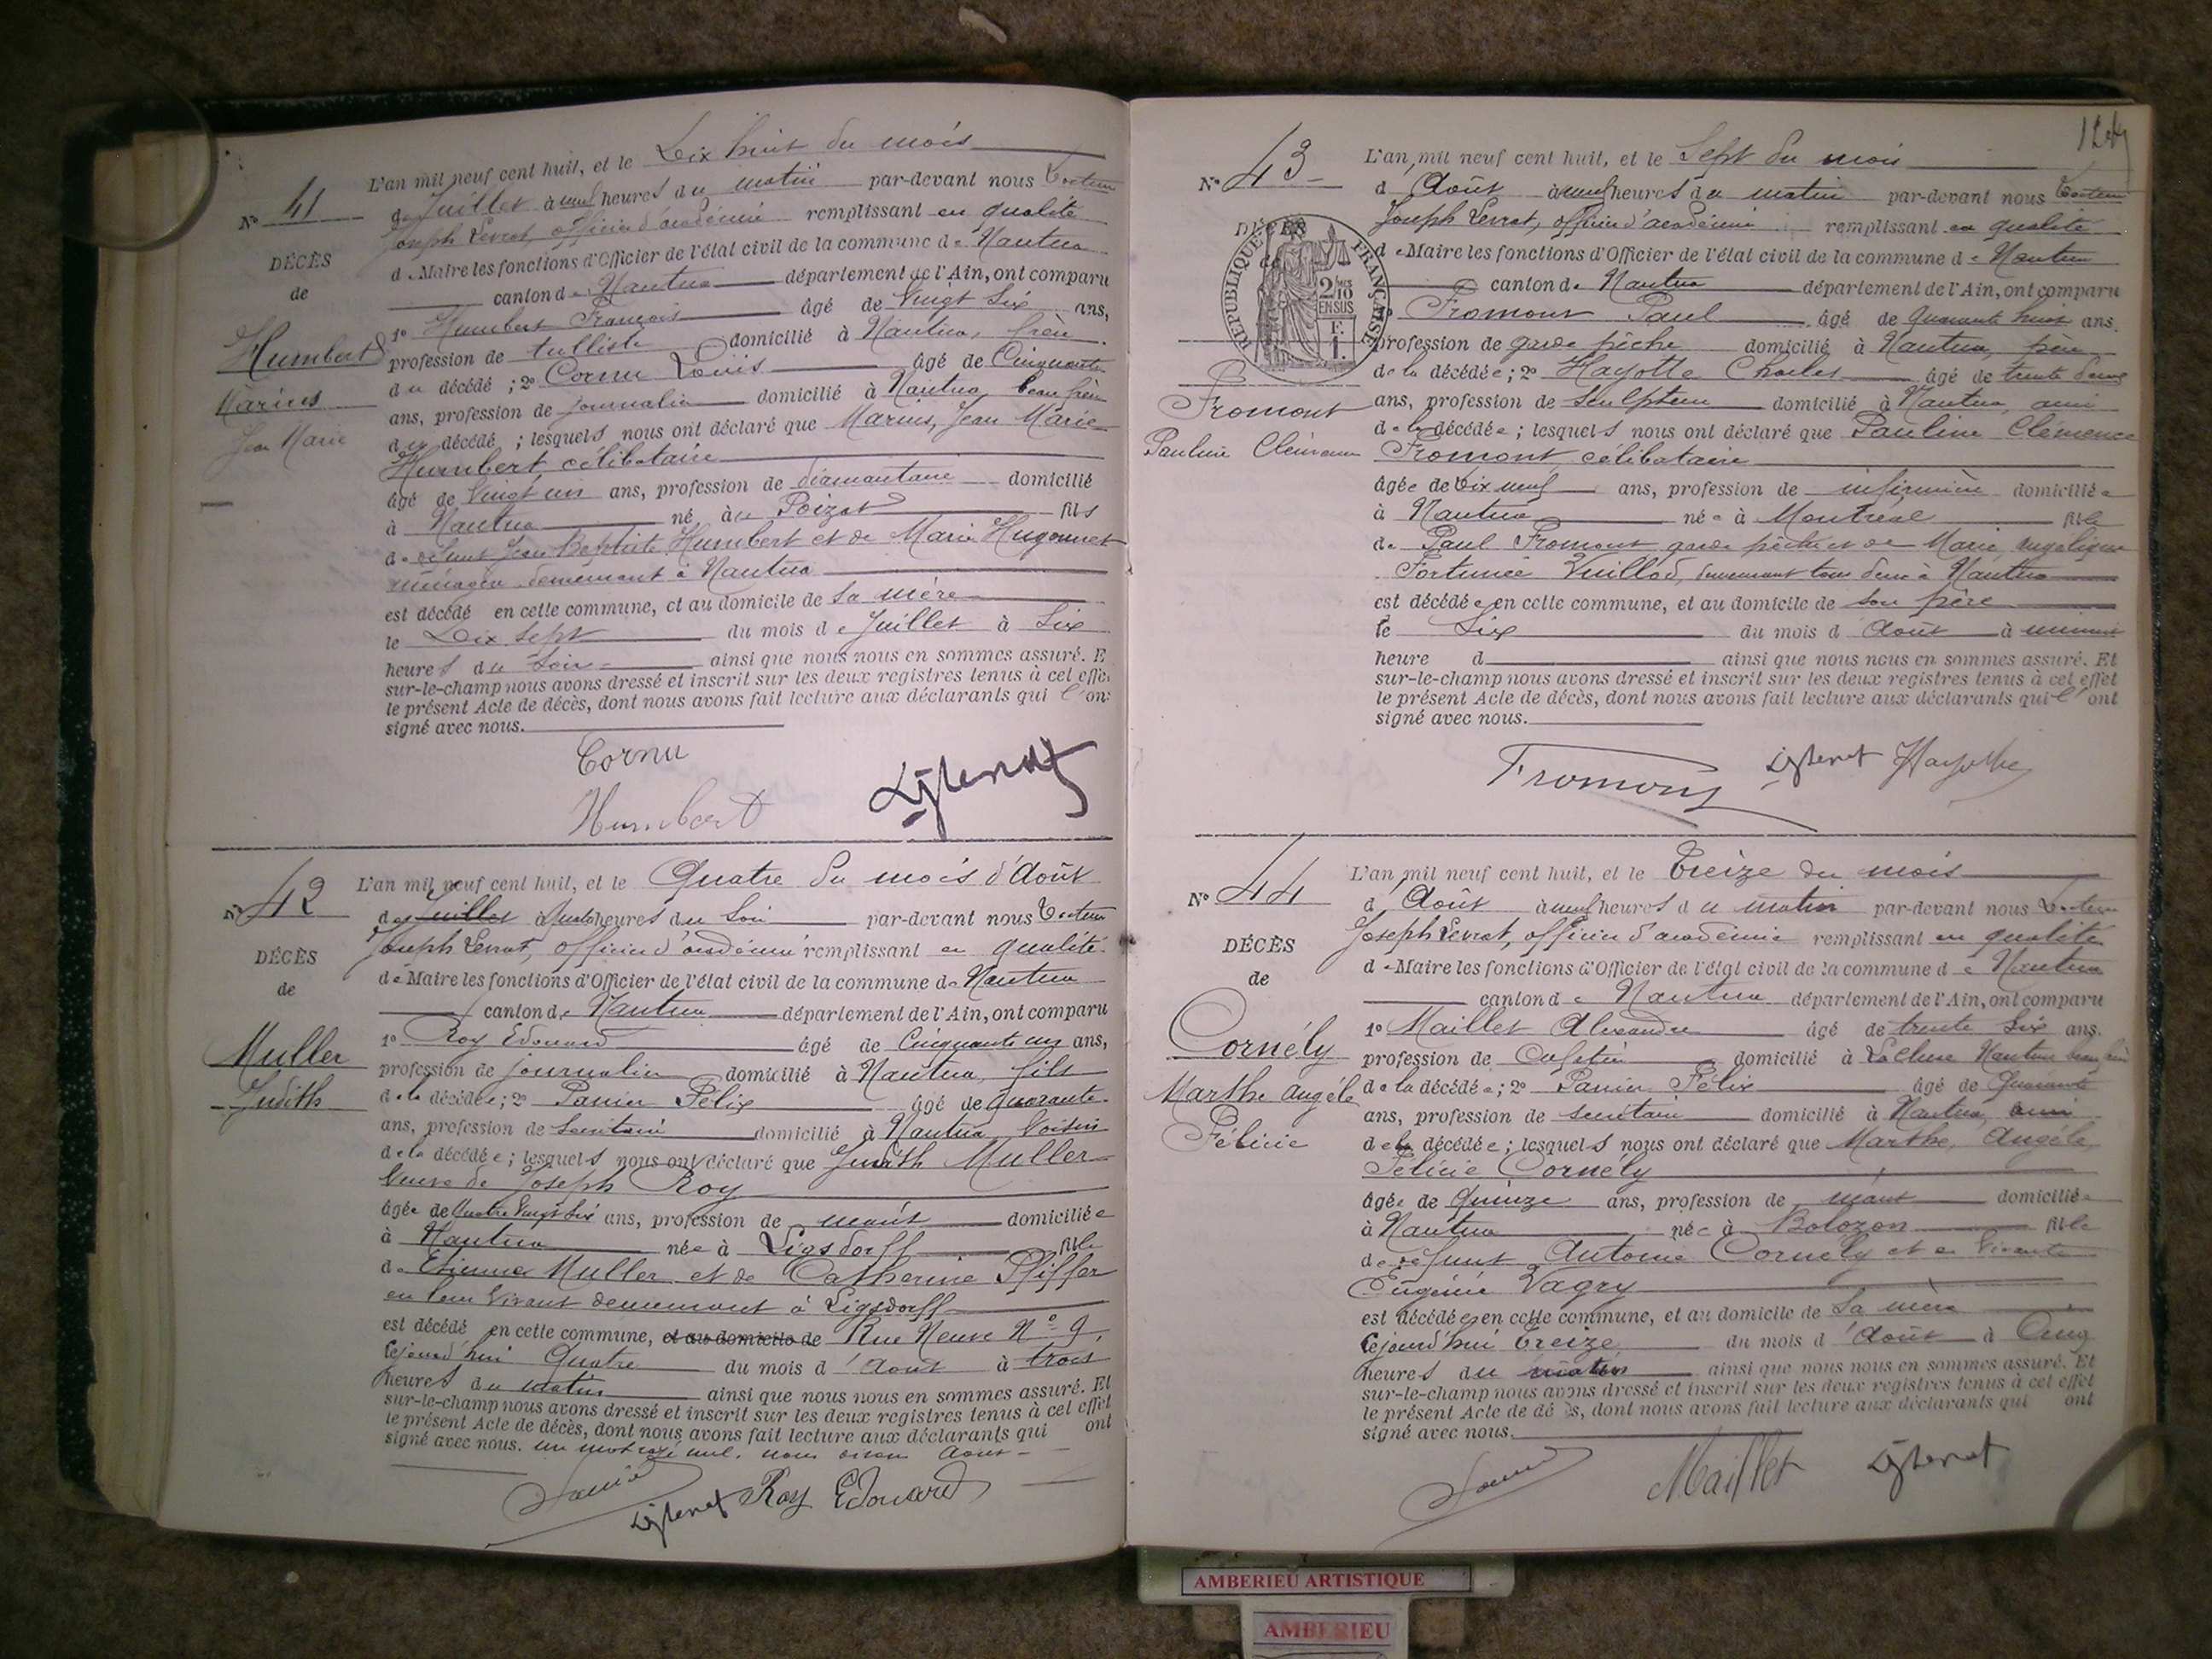 N° 41
DÉCÈS
de
Humbert
Marius
Jean Marie
L'an mil neuf cent huit, et le Dix huit du mois
de Juillet à neuf heures du matin par-devant nous Docteur
Joseph Levrat, officier d'académie remplissant en qualité
de Maire les fonctions d'Officier de l'état civil de la commune de Nantua
canton de Nantua département de l'Ain, ont comparu
1° Humbert François âgé de vingt six ans,
profession de tulliste domicilié à Nantua, frère
du décédé ; 2° Cornu Louis âgé de Cinquante
ans, profession de journalier domicilié à Nantua beau frère
du décédé ; lesquels nous ont déclaré que Marius, Jean Marie
Humbert, célibataire
âgé de vingt un ans, profession de diamantaire domicilié
à Nantua né au Poizat fils
de défunt Jean Baptiste Humbert et de Marie Hugonnet
ménagère demeurant à Nantua
est décédé en cette commune, et au domicile de sa mère
le Dix sept du mois de Juillet à Six
heures du soir ainsi que nous nous en sommes assuré. E
sur-le-champ nous avons dressé et inscrit sur les deux registres tenus à cet effe
le présent Acte de décès, dont nous avons fait lecture aux déclarants qui l'on
signé avec nous.
Cornu
Humbert
N° 42
DÉCÈS
de
Muller
Judith
L'an mil neuf cent huit, et le Quatre du mois d'Août
de Juillet à quatre heures du soir par-devant nous Docteur
Joseph Levrat, officier d'académie remplissant en qualité
de Maire les fonctions d'Officier de l'état civil de la commune de Nantua
canton de Nantua département de l'Ain, ont comparu
1° Roy Edouard âgé de Cinquante un ans,
profession de journalier domicilié à Nantua, fils
de la décédée ; 2° Panier Félix âgé de quarante
ans, profession de secrétaire domicilié à Nantua voisin
de la décédée ; lesquels nous ont déclaré que Judith Muller
veuve de Joseph Roy
âgée de Quatre vingt six ans, profession de néant domiciliée
à Nantua née à Ligsdorff fille
de Etienne Muller et de Catherine Pfiffer
en leur vivant demeurant à Ligsdorff
est décédé en cette commune, et au domicile de Rue Neuve N° 9,
cejourd'hui Quatre du mois d'Août à trois
heures du matin ainsi que nous nous en sommes assuré. Et
sur-le-champ nous avons dressé et inscrit sur les deux registres tenus à cet effet
le présent Acte de décès, dont nous avons fait lecture aux déclarants qui ont
signé avec nous. un mot rayé nul. nous disons Août
Roy Edouard
124
N° 43
DÉCÈS
de
RÉPUBLIQUE FRANÇAISE
2/10 EN SUS
Fromont
Pauline Clémence
L'an mil neuf cent huit, et le Sept du mois
d'Août à neuf heures du matin par-devant nous Docteur
Joseph Levrat, officier d'académie remplissant en qualité
de Maire les fonctions d'Officier de l'état civil de la commune de Nantua
canton de Nantua département de l'Ain, ont comparu
Fromont Paul âgé de Quarante huit ans.
profession de garde pêche domicilié à Nantua, père
de la décédée ; 2° Hayotte Charles âgé de trente deux
ans, profession de sculpteur domicilié à Nantua, ami
de la décédée ; lesquels nous ont déclaré que Pauline Clémence
Fromont, célibataire
âgée de Dix neuf ans, profession de infirmière domiciliée
à Nantua née à Montréal fille
de Paul Fromont garde pêche et de Marie Angélique
Fortunée Vuillod, demeurant tous deux à Nantua
est décédée en cette commune, et au domicile de son père
le Six du mois d'Août à minuit
heure d ainsi que nous nous en sommes assuré. Et
sur-le-champ nous avons dressé et inscrit sur les deux registres tenus à cet effet
le présent Acte de décès, dont nous avons fait lecture aux déclarants qui l'ont
signé avec nous.
Fromont Hayotte
N° 44
DÉCÈS
de
Cornély
Marthe Angéle
Félicie
L'an mil neuf cent huit, et le Treize du mois
d'Août à neuf heures du matin par-devant nous Docteur
Joseph Levrat, officier d'académie remplissant en qualité
de Maire les fonctions d'Officier de l'état civil de la commune de Nantua
canton de Nantua département de l'Ain, ont comparu
1° Maillet Alexandre âgé de trente six ans.
profession de Cafetier domicilié à Lacluse Nantua beau frère
de la décédée ; 2° Panier Félix âgé de Quarante
ans, profession de secrétaire domicilié à Nantua, ami
de la décédée ; lesquels nous ont déclaré que Marthe, Angéle
Félicie Cornély
âgée de Quinze ans, profession de néant domiciliée
à Nantua née à Bolozon fille
de défunt Antoine Cornély et de vivante
Eugénie Vagry
est décédée en cette commune, et au domicile de sa mère
cejourd'hui Treize du mois d'Août à Cinq
heures du matin ainsi que nous nous en sommes assuré. Et
sur-le-champ nous avons dressé et inscrit sur les deux registres tenus à cet effet
le présent Acte de décès, dont nous avons fait lecture aux déclarants qui ont
signé avec nous.
Maillet
AMBERIEU ARTISTIQUE
AMBERIEU